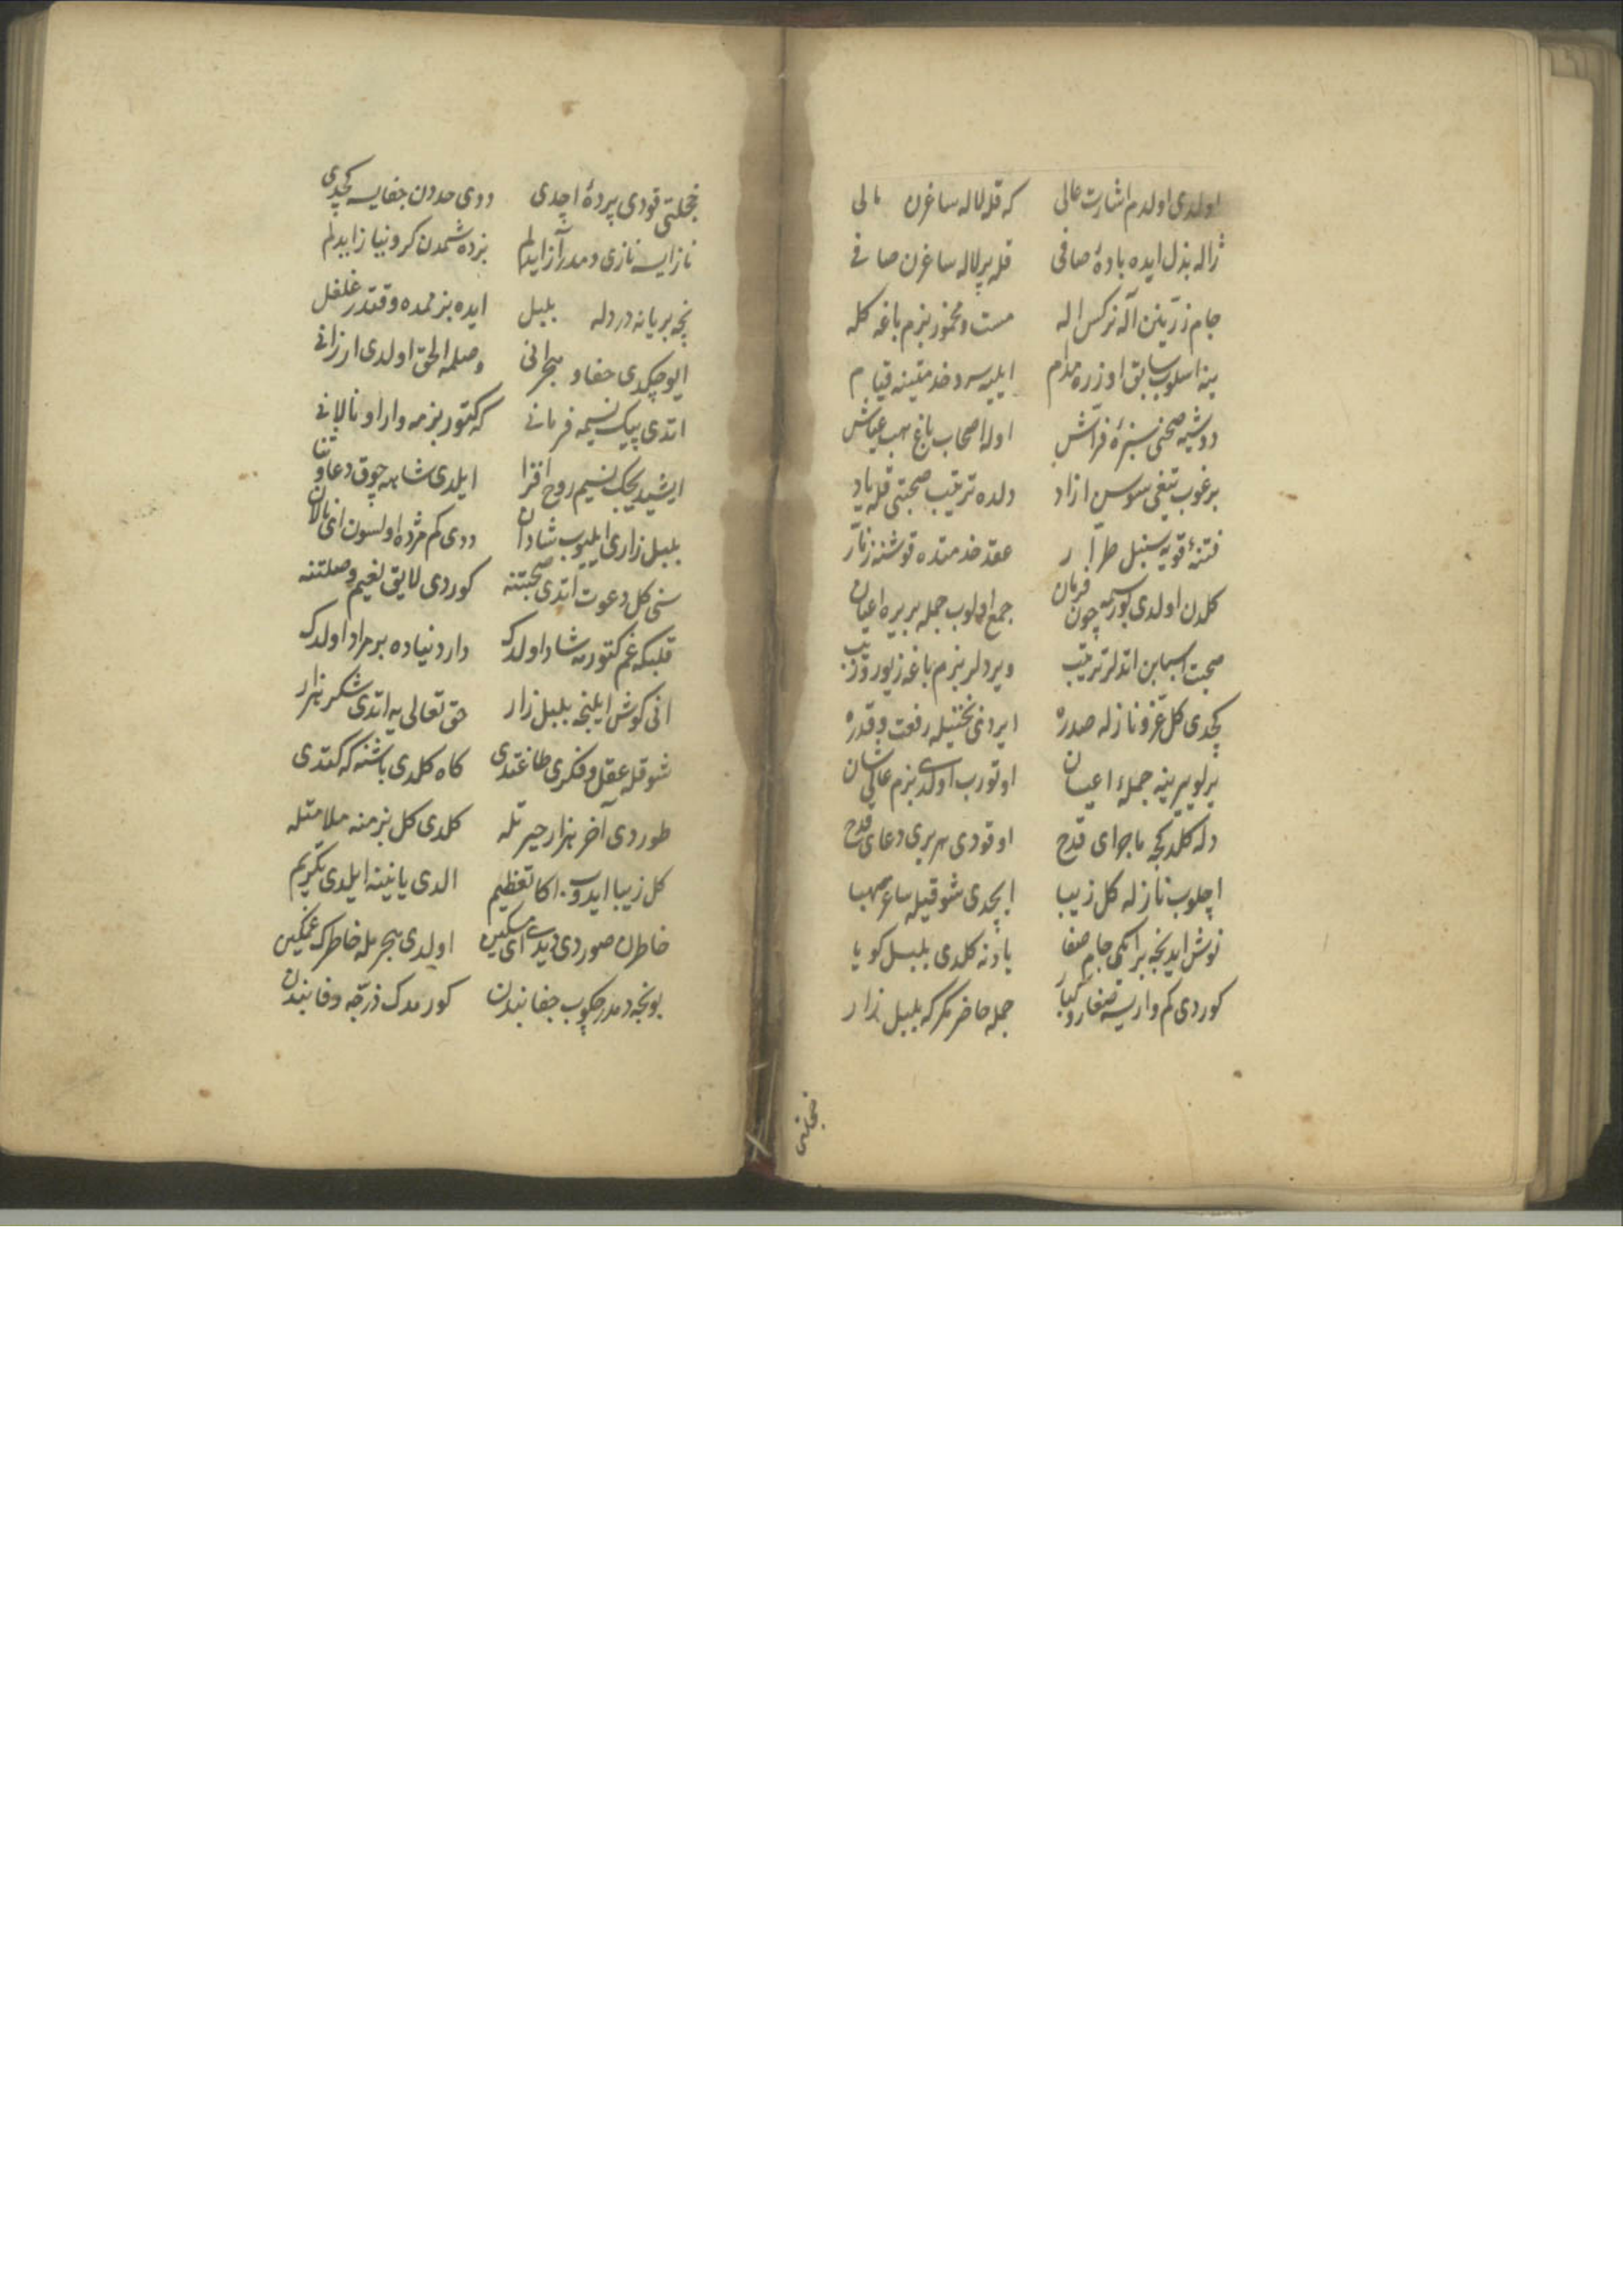 اولدی اولدم اشارت عالی که قله لاله ساغرن مالی
ژاله بذل ایده بادهٔ صافی قله پر لاله ساغرن صافی
جام زرینن آله نرکس اله مست و مخمور بزم باغه کله
ینه اسلوب سابق اوزره مدام ایلیه سرو خدمتینه قیام
دوشیه صحنی سبزهٔ فراش اوله اصحاب باغ هپ عیاش
برغوب تیغی سوسن ازاد دلده ترتیب صحبتی قله یاد
فتنهٔ قویه سنبل طرار عقد خدمتده قوشنه زنار
کلدن اولدی بورسمه چون فرمان جمع اولوب جمله بر یره اعیان
صحبت اسبابن اتدلر ترتیب ویردلر بزم باغه زیور و زیب
کچدی کل عز و نازله صدره ایردی بختیله رفعت و قدره
یرلو یرینه جملهء اعیان اوتورب اولدی بزم عالی شان
دله کلدکجه ماجرای قدح اوقودی هر بری دعای قدح
اچلوب نازله کل زیبا ایچدی شوقیله ساغر صهبا
نوش ایدنجه بر ایکی جام صفا یادنه کلدی بلبل کویا
کوردی کم وار یسه صغار و کبار جمله حاضر مکر که بلبل زار
خجلتی
خجلتی قودی پردهٔ اچدی ددی حددن جفایسه کچدی
نازایسه نازی دمدر آز ایدلم بزده شمدن کرو نیاز ایدلم
نچه بر یانه درد له بلبل ایده بزممده وقتدر غلغل
ایو چکدی جفاو هجرانی وصلمه الحق اولدی ارزانی
اتدی پیک نسیمه فرمانی که کتور بزمه وار او نالانی
ایشیدیجک نسیم روح افزا ایلدی شاهه چوق دعا و ثنا
بلبل زاری ایلیوب شادان ددی کم مژده اولسون ای نالان
سنی کل دعوت اتدی صحبتنه کوردی لایق نعیم وصلتنه
قلبکه غم کتورمه شاد اولدک دار دنیاده بر مراد اولدک
انی کوش ایلنجه بلبل زار حق تعالی یه اتدی شکر هزار
شوقله عقل و فکری طاغتدی کاه کلدی باشنه که کتدی
طوردی آخر هزار حیرتله کلدی کل بزمنه ملامتله
کل زیبا ایدوب اکا تعظیم الدی یانینه ایلدی تکریم
خاطرن صوردی دیدی ای مسکین اولدی هجرمله خاطرک غمکین
بونجه دمدر چکوب جفا بندن کورمدک ذرّجه وفا بندن